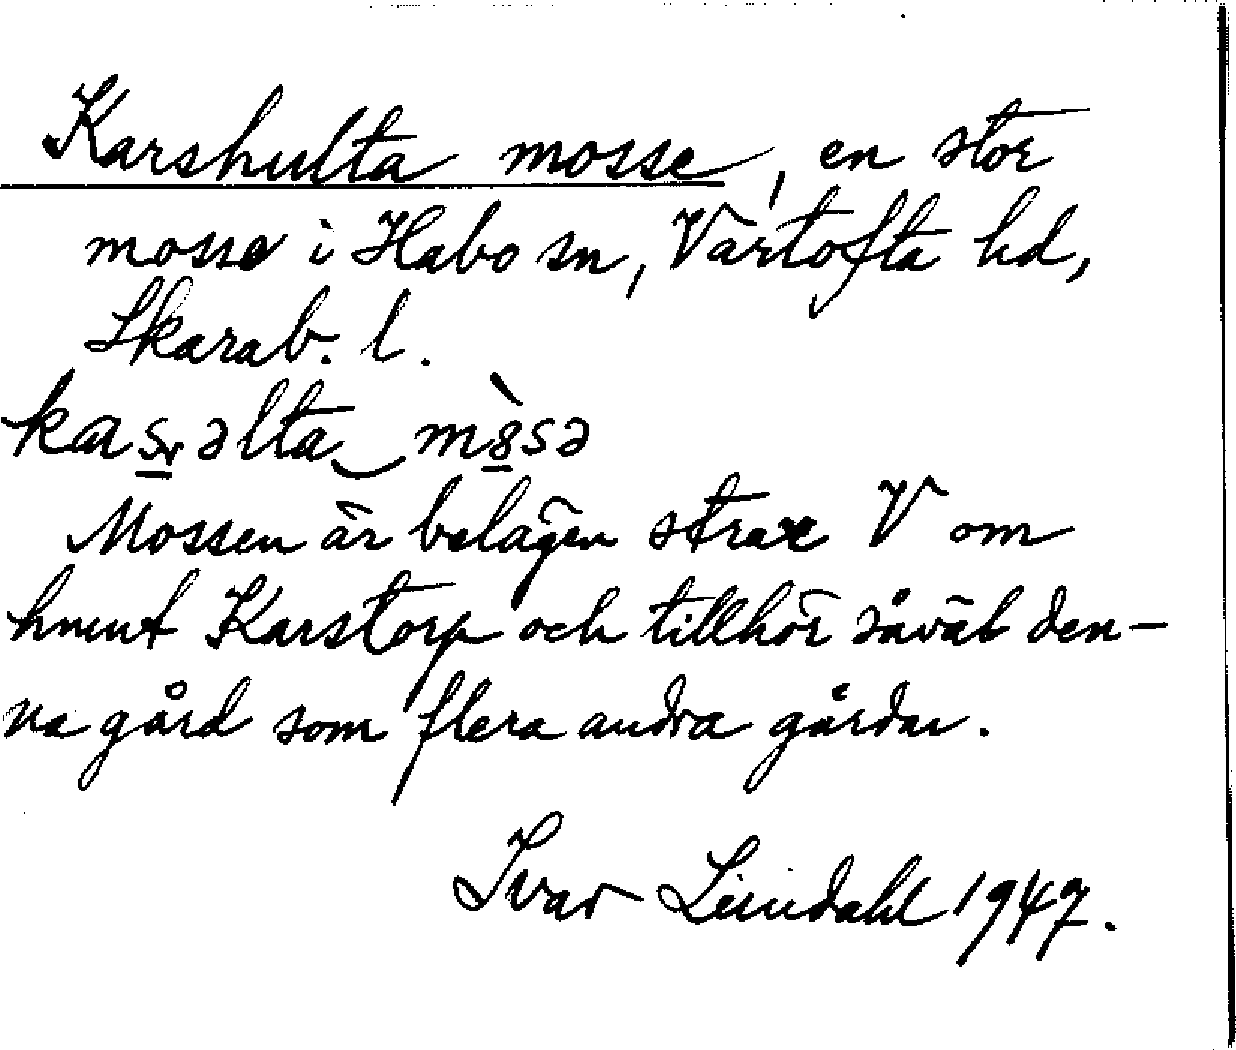 Karshulta mosse, en stor
mosse i Habo sn, Vartofta hd,
Skarab. l.
kasəlta mòsə
Mossen är belägen strax V om
hmnt Karstorp och tillhör såväl den-
na gård som flera andra gårdar.
Ivar Lindahl 1947.